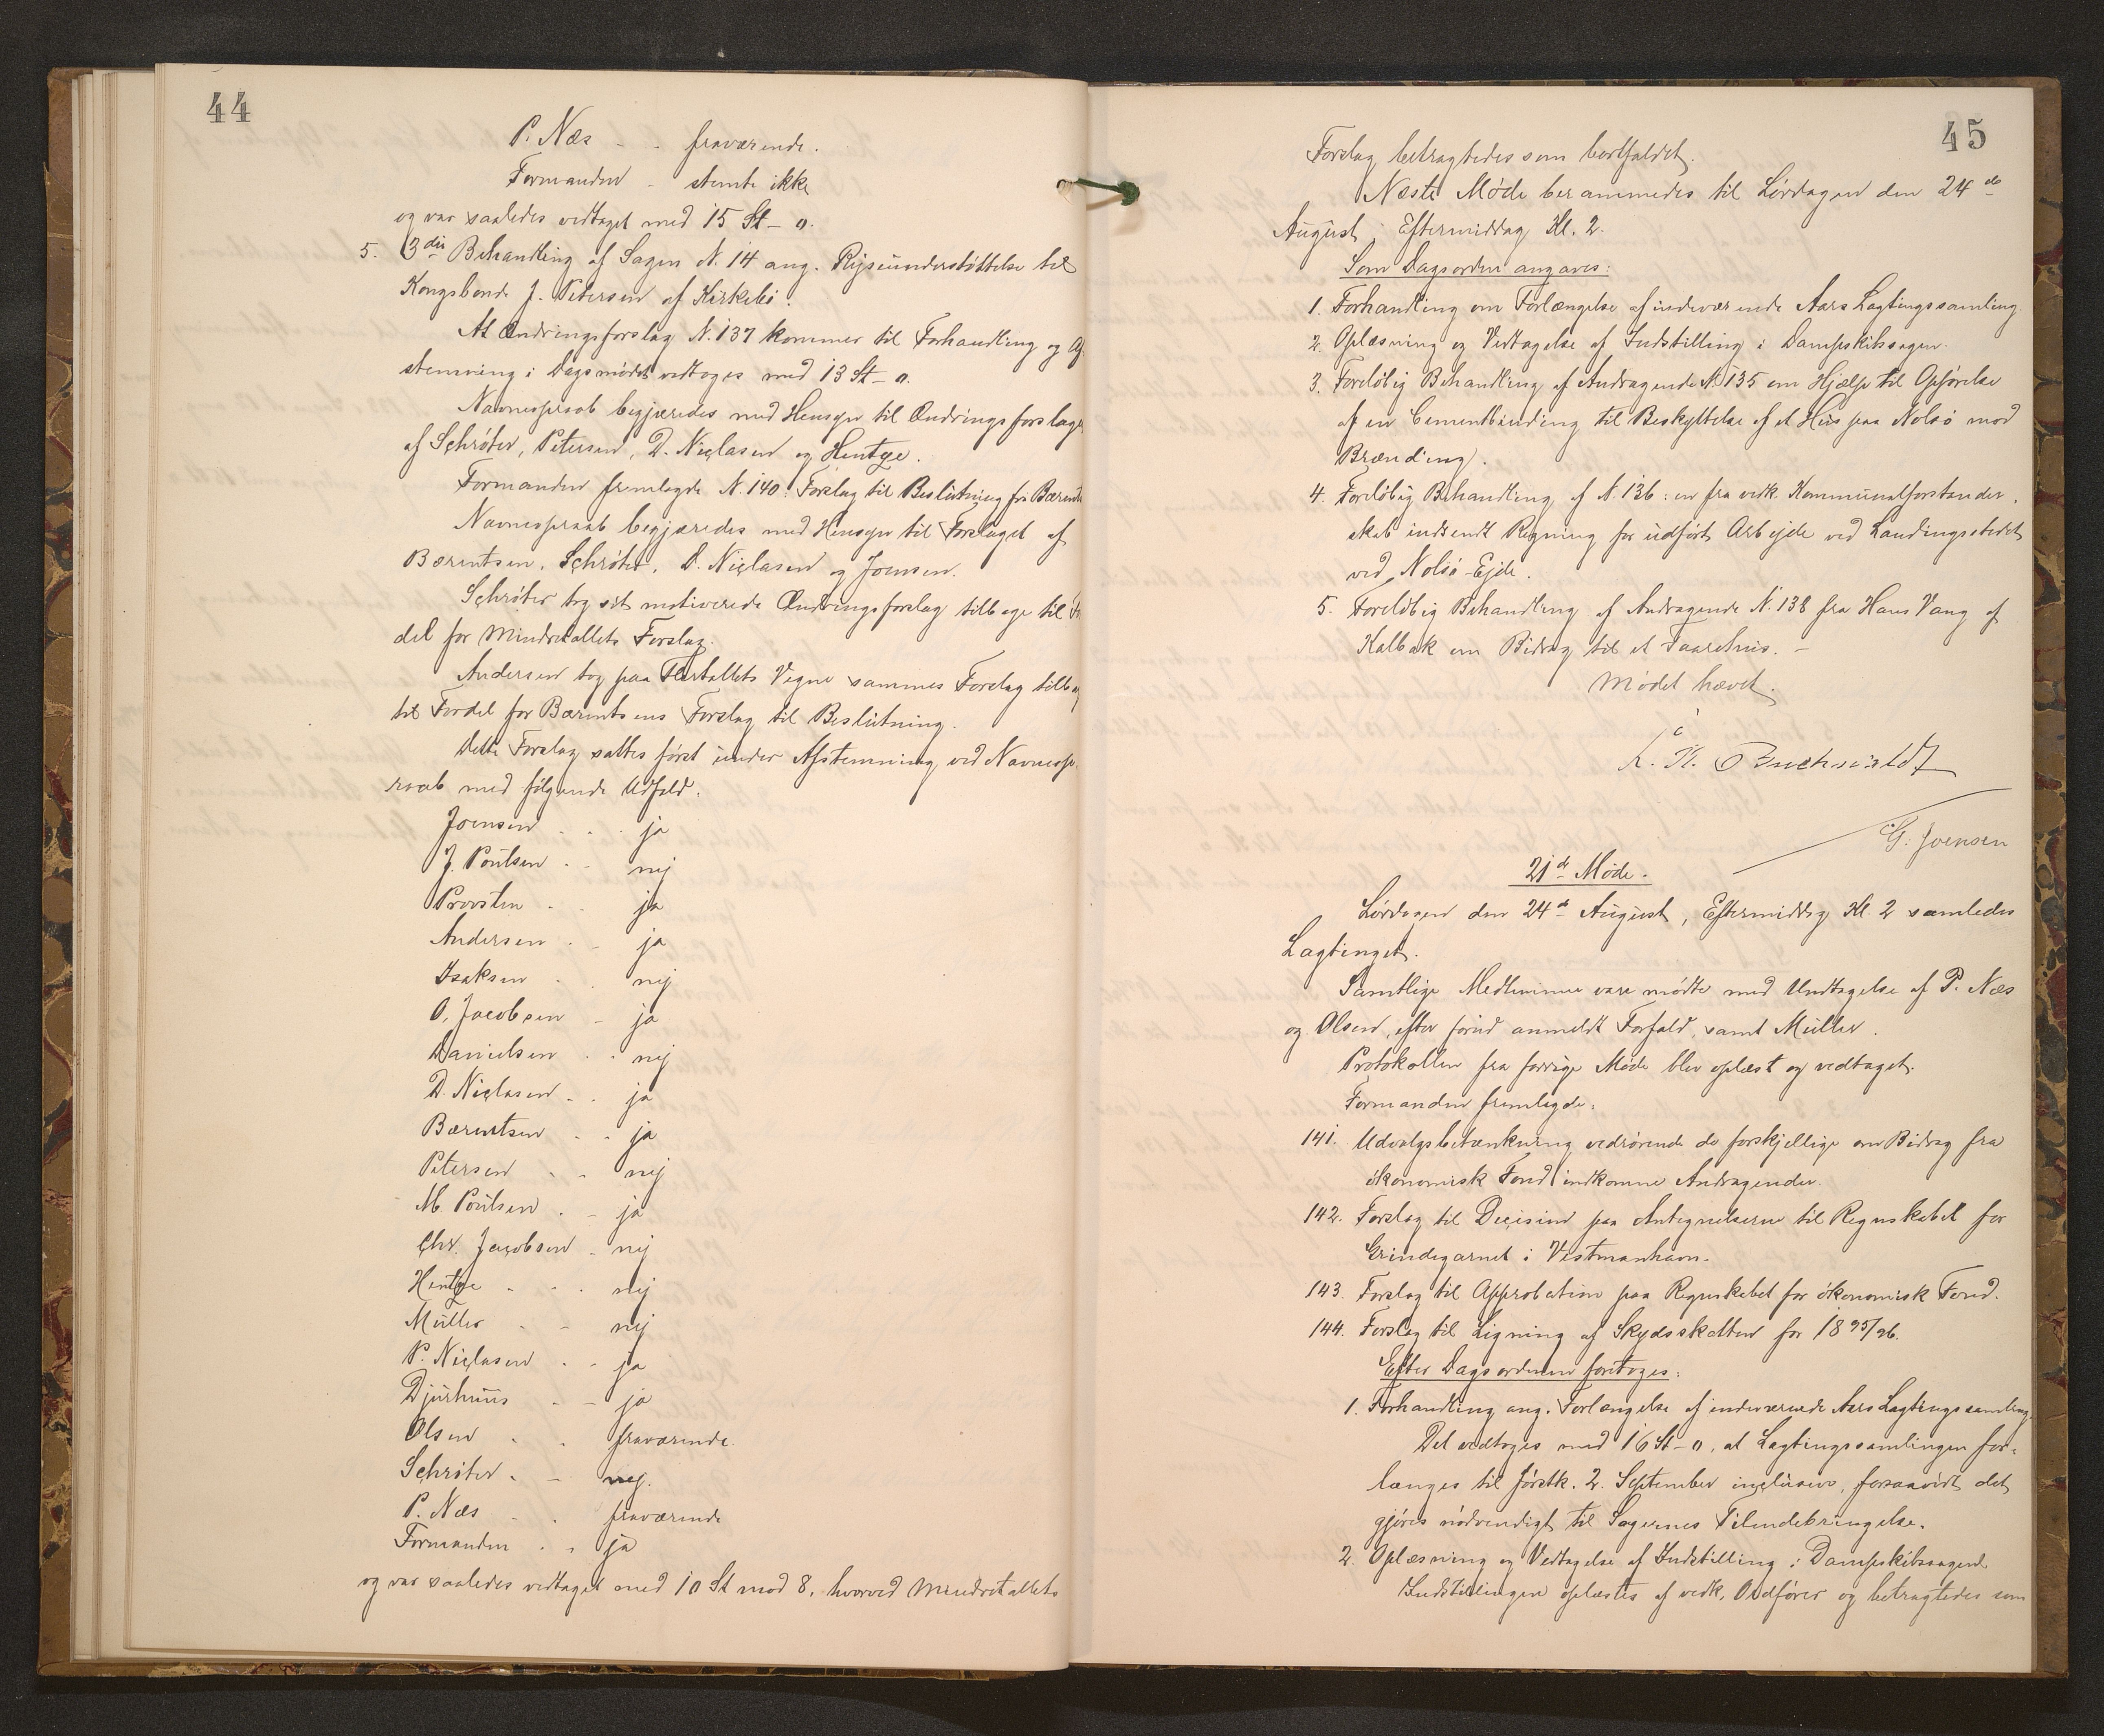 44
P. Næs - - fraværende.
Formanden - stemte ikke
og var saaledes vedtaget med 15 St - 0.
5. 3die Behandling af Sagen N. 14 ang. Rejseunderstøttelse til
Kongsbonde J. Petersen af Kirkebø.
At Ændringsforslag N. 137 kommer til Forhandling og Af
stemning i Dagsmødet vedtoges med 13 St - 0.
Navneopraab begjæredes med Hensyn til Ændringsforslaget
af Schrøter, Petersen, D. Niclasen og Hentze.
Formanden fremlagde N. 140: Forslag til Beslutning fra Bærents
Navneopraab begjæredes med Hensyn til Forslaget af
Bærentsen, Schrøter, D. Niclasen og Joensen.
Schrøter tog sit motiverede Ændringsforslag tilbage til For
del for Mindretallets Forslag.
Andersen tog paa Flertallets Vegne sammes Forslag tilbage
til Fordel for Bærentsens Forslag til Beslutning.
Dette Forslag sattes først under Afstemning ved Navneop-
raab med følgende Udfald.
Joensen - - - ja
J. Poulsen - - nej
Provsten - - ja
Andersen - - ja
Isaksen - - nej
O. Jacobsen - ja
Danielsen - - nej
D. Niclasen - - ja
Bærentsen - - ja
Petersen - - nej
M. Poulsen - - ja
Chr. Jacobsen - nej
Hentze - - - nej
Müller - - nej
P. Niclasen - - ja
Djurhuus - - ja
Olsen - - fraværende
Schrøter - - nej.
P. Næs - - fraværende
Formanden - - ja
og var saaledes vedtaget med 10 St mod 8, hvorved Mindretallets
45
Forslag betragtedes som bortfaldet.
Næste Møde berammedes til Lørdagen den 24de
August, Eftermiddag Kl. 2.
Som Dagsorden angaves:
1. Forhandling om Forlængelse af indeværende Aars Lagtingssamling.
2. Oplæsning og Vedtagelse af Indstilling i Dampskibssagen.
3. Foreløbig Behandling af Andragende N. 135 om Hjælp til Opførelse
af en Cementbinding til Beskyttelse af et Hus paa Nolsø mod
Brænding.
4. Foreløbig Behandling af N. 136: en fra vedk. Kommunalforstander-
skab indsendt Regning for udført Arbejde ved Landingsstedet
ved Nolsø-Ejde.
5. Foreløbig Behandling af Andragende N. 138 fra Hans Vang af
Kalbak om Bidrag til et Faarehus. -
Mødet hævet.
C. Buchwaldt
G. Joensen
21de Møde.
Lørdagen den 24de August, Eftermiddag Kl. 2 samledes
Lagtinget.
Samtlige Medlemmer vare mødte med Undtagelse af P. Næs
og Olsen, efter forud anmeldt Forfald, samt Müller.
Protokollen fra forrige Møde blev oplæst og vedtaget.
Formanden fremlagde:
141. Udvalgsbetænkning vedrørende de forskjellige om Bidrag fra
økonomisk Fond indkomne Andragender.
142. Forslag til Decision paa Antegnelserne til Regnskabet for
Grindegarnet i Vestmanhavn.
143. Forslag til Approbation paa Regnskabet for økonomisk Fond.
144. Forslag til Ligning af Skydsskatten for 1895/96.
Efter Dagsordenen foretoges:
1. Forhandling ang. Forlængelse af indeværende Aars Lagtingssamling.
Det vedtoges med 16 St - 0, at Lagtingssamlingen for-
længes til førstk. 2. September inclusive, forsaavidt det
gjøres nødvendigt til Sagernes Tilendebringelse.
2. Oplæsning og Vedtagelse af Indstilling i Dampskibssagen.
Indstillingen oplæstes af vedk. Ordfører og betragtedes som